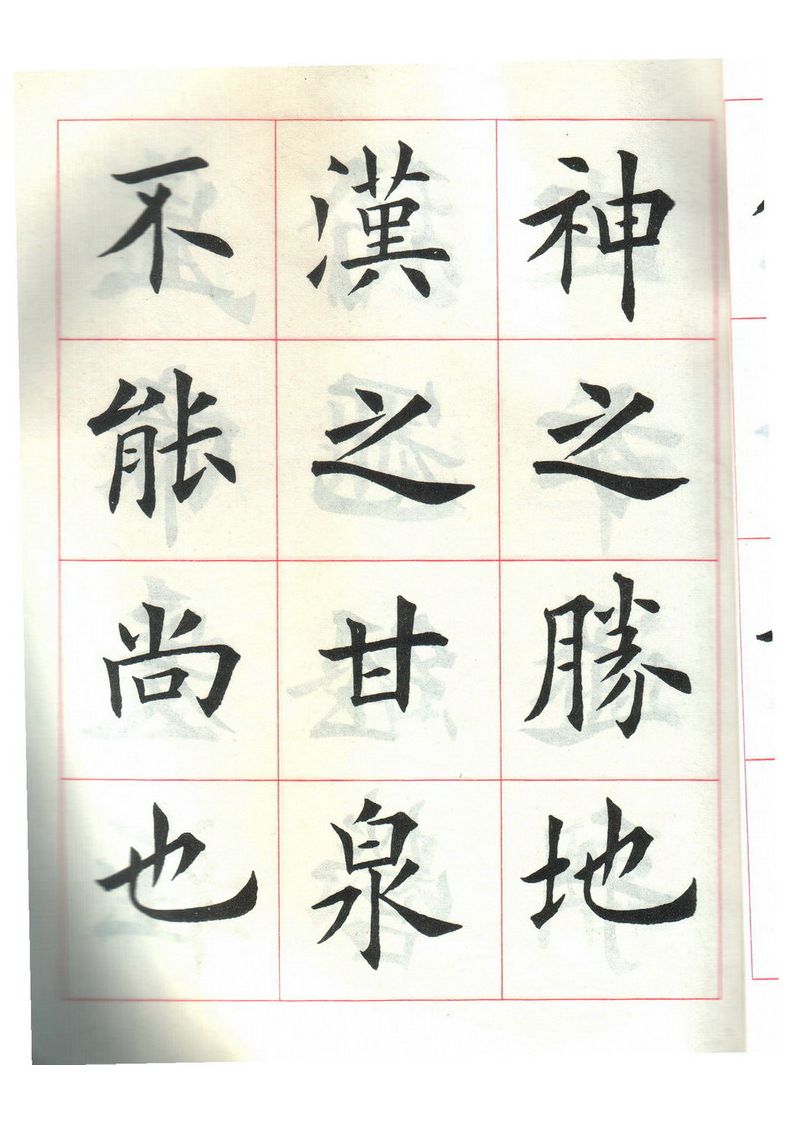 神之勝地
漢之甘泉
不能尚也